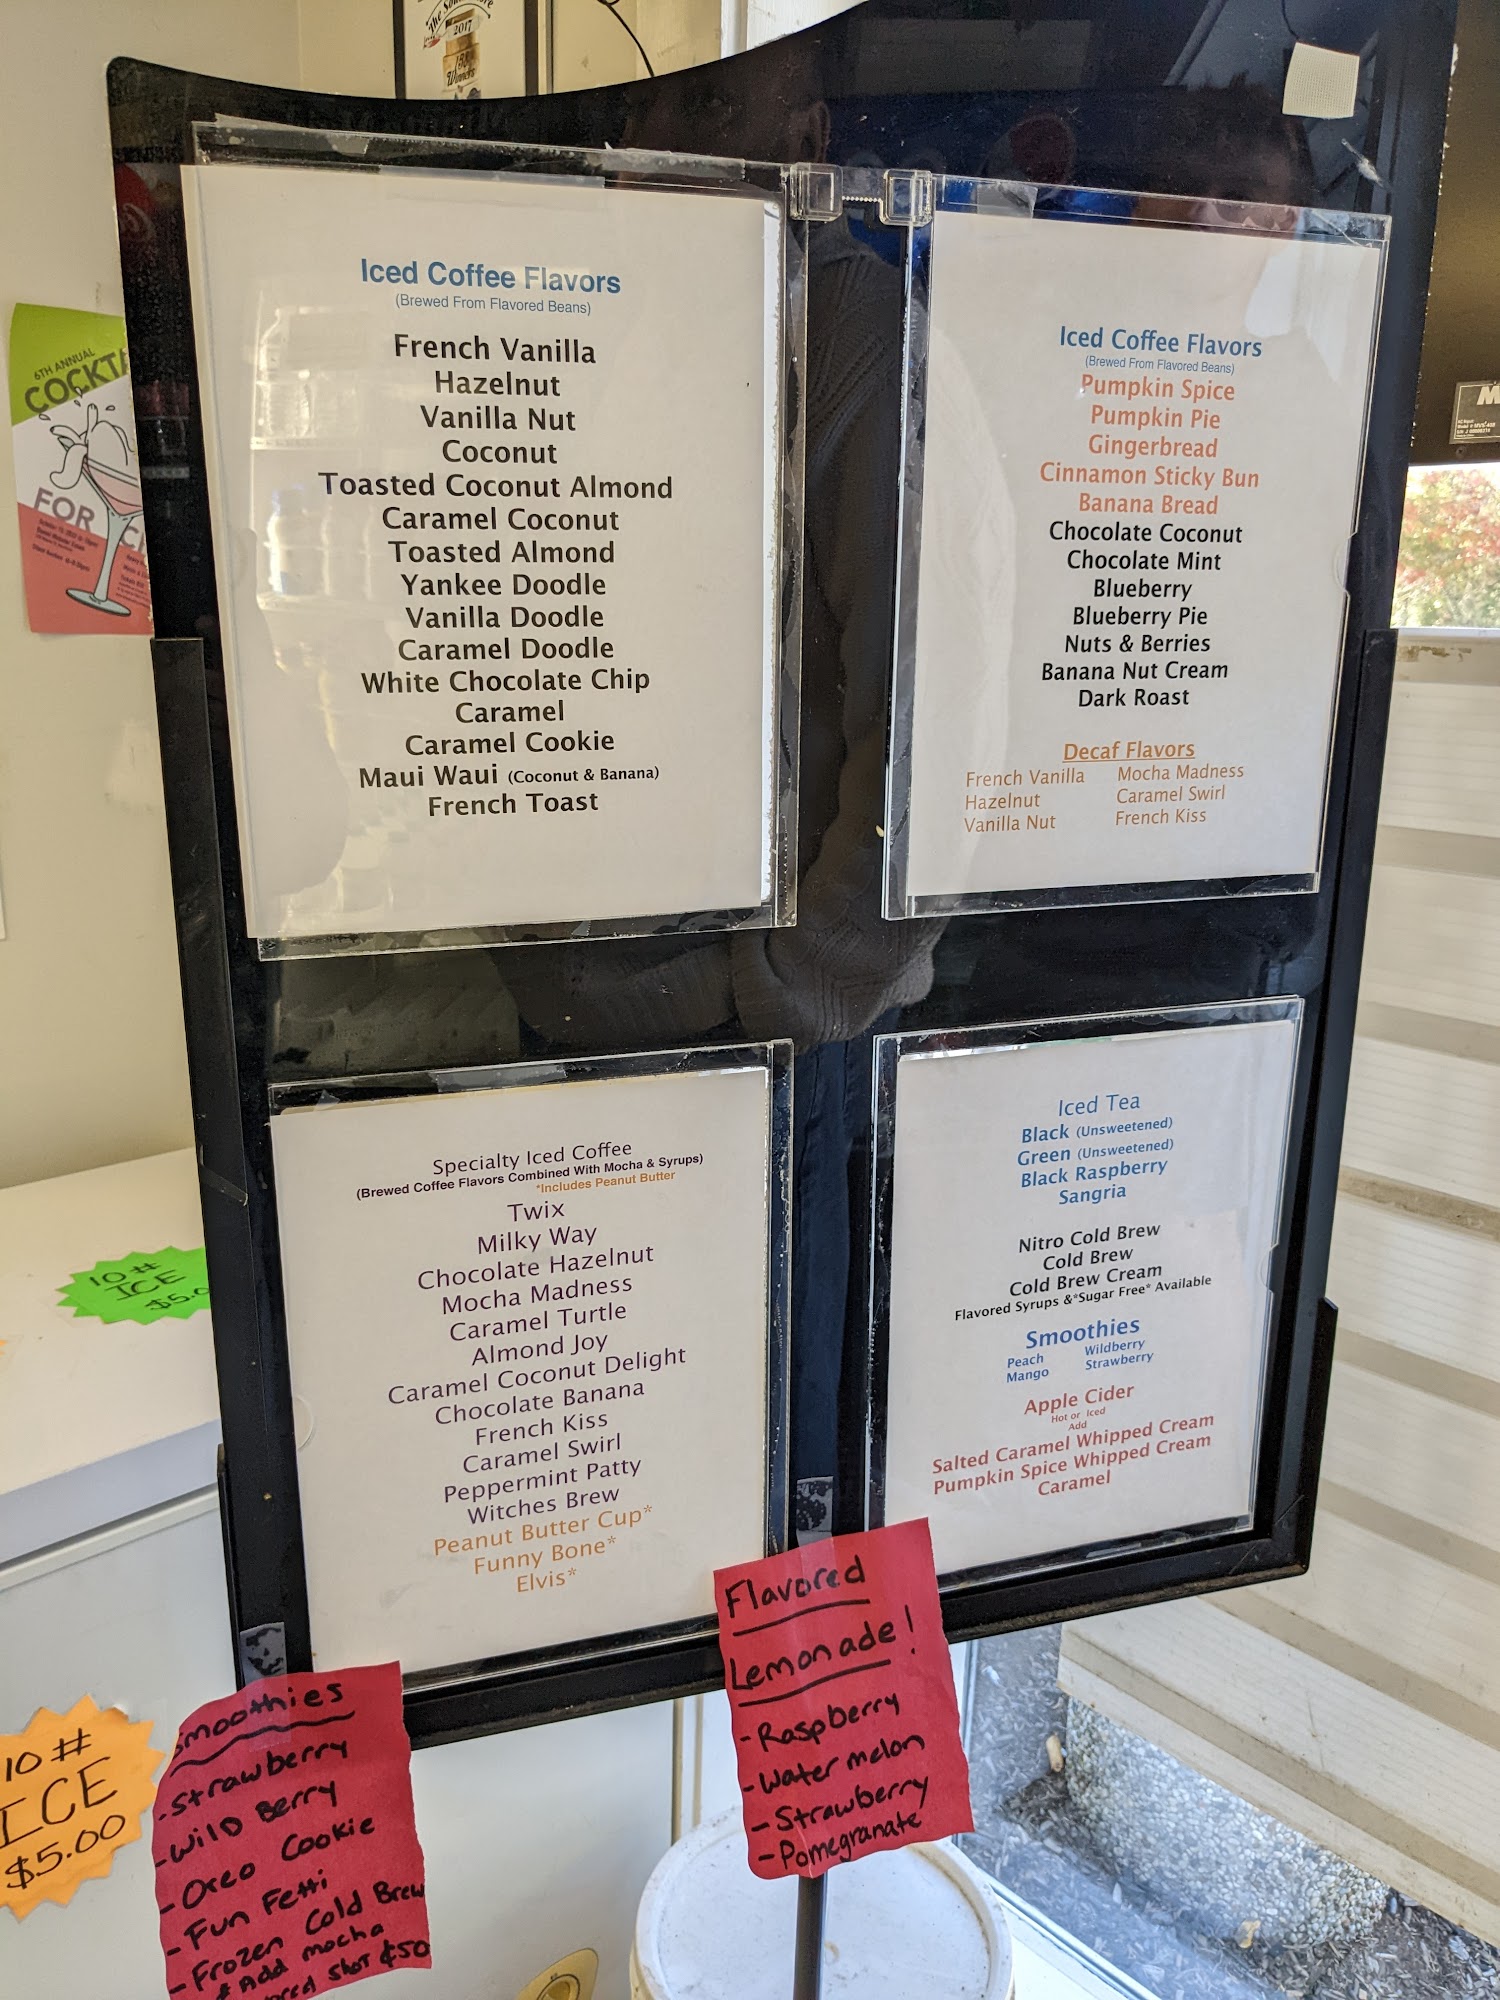 2017
Winners
6TH ANNUAL
FOR
Iced Coffee Flavors
(Brewed From Flavored Beans)
French Vanilla
Hazelnut
Vanilla Nut
Coconut
Toasted Coconut Almond
Caramel Coconut
Toasted Almond
Yankee Doodle
Vanilla Doodle
Caramel Doodle
White Chocolate Chip
Caramel
Caramel Cookie
Maui Waui (Coconut & Banana)
French Toast
Iced Coffee Flavors
(Brewed From Flavored Beans)
Pumpkin Spice
Pumpkin Pie
Gingerbread
Cinnamon Sticky Bun
Banana Bread
Chocolate Coconut
Chocolate Mint
Blueberry
Blueberry Pie
Nuts & Berries
Banana Nut Cream
Dark Roast
Decaf Flavors
French Vanilla Mocha Madness
Hazelnut Caramel Swirl
Vanilla Nut French Kiss
Specialty Iced Coffee
(Brewed Coffee Flavors Combined With Mocha & Syrups)
*Includes Peanut Butter
Twix
Milky Way
Chocolate Hazelnut
Mocha Madness
Caramel Turtle
Almond Joy
Caramel Coconut Delight
Chocolate Banana
French Kiss
Caramel Swirl
Peppermint Patty
Witches Brew
Peanut Butter Cup*
Funny Bone*
Elvis*
Iced Tea
Black (Unsweetened)
Green (Unsweetened)
Black Raspberry
Sangria
Nitro Cold Brew
Cold Brew
Cold Brew Cream
Flavored Syrups &*Sugar Free* Available
Smoothies
Peach Wildberry
Mango Strawberry
Apple Cider
Hot or Iced
Add
Salted Caramel Whipped Cream
Pumpkin Spice Whipped Cream
Caramel
10 #
ICE
10 #
ICE
$5.00
Smoothies
-Strawberry
-Wild Berry
-Oreo Cookie
-Fun Fetti
-Frozen Cold Brew
* Add mocha
shot
Flavored
Lemonade!
-Raspberry
-Watermelon
-Strawberry
-Pomegranate